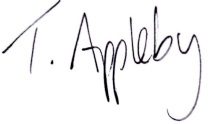 T. Appleby